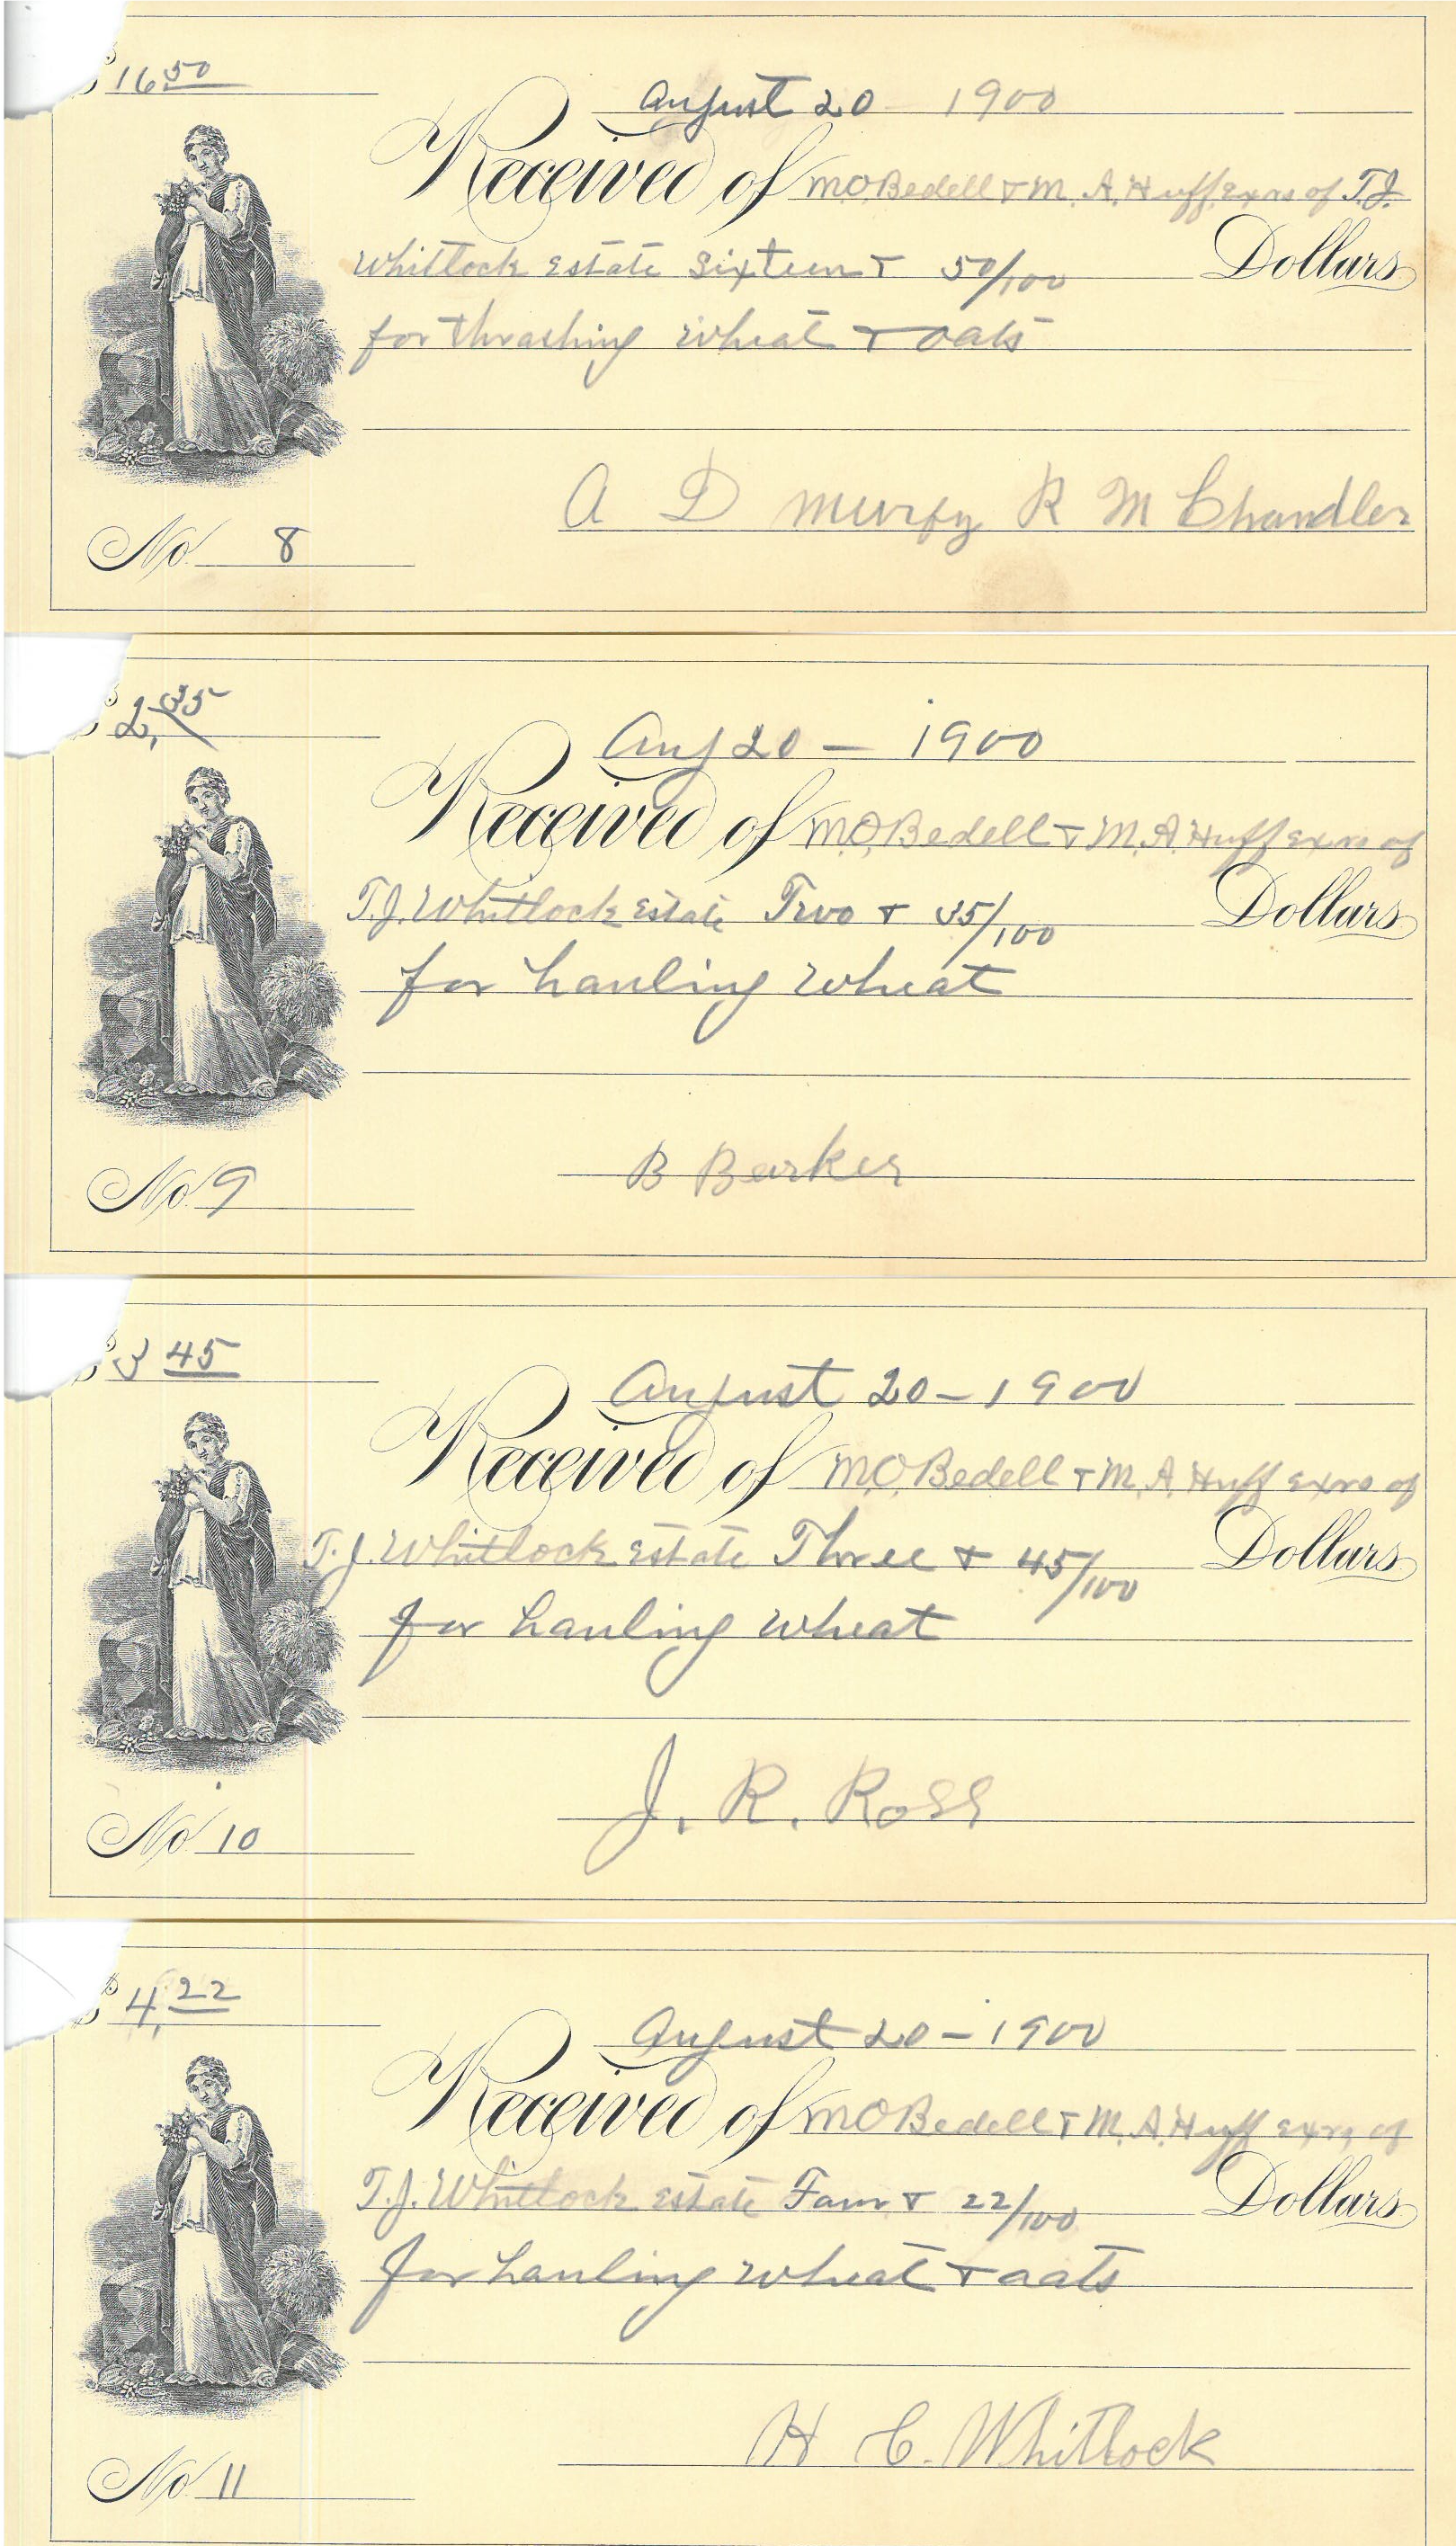 $ 16 50
August 20 1900
Received of M.O. Bedell + M. A. Huff Exrs of T.J.
Whitlock Estate Sixteen + 50/100 Dollars
for thrashing wheat + oats
A D Murfy R M Chandler
No. 8
$ 2, 35
Aug 20 — 1900
Received of M.O. Bedell + M. A. Huff Exrs of
T.J. Whitlock Estate Two + 35/100 Dollars
for hauling wheat
B Barker
No. 9
$ 3 45
August 20 — 1900
Received of M.O. Bedell + M. A. Huff Exrs of
T.J. Whitlock Estate Three + 45/100 Dollars
for hauling wheat
J. R. Ross
No. 10
$ 4, 22
August 20 — 1900
Received of M O Bedell + M. A. Huff Exrs of
T.J. Whitlock Estate Four + 22/100 Dollars
for hauling wheat + oats
H C. Whitlock
No. 11